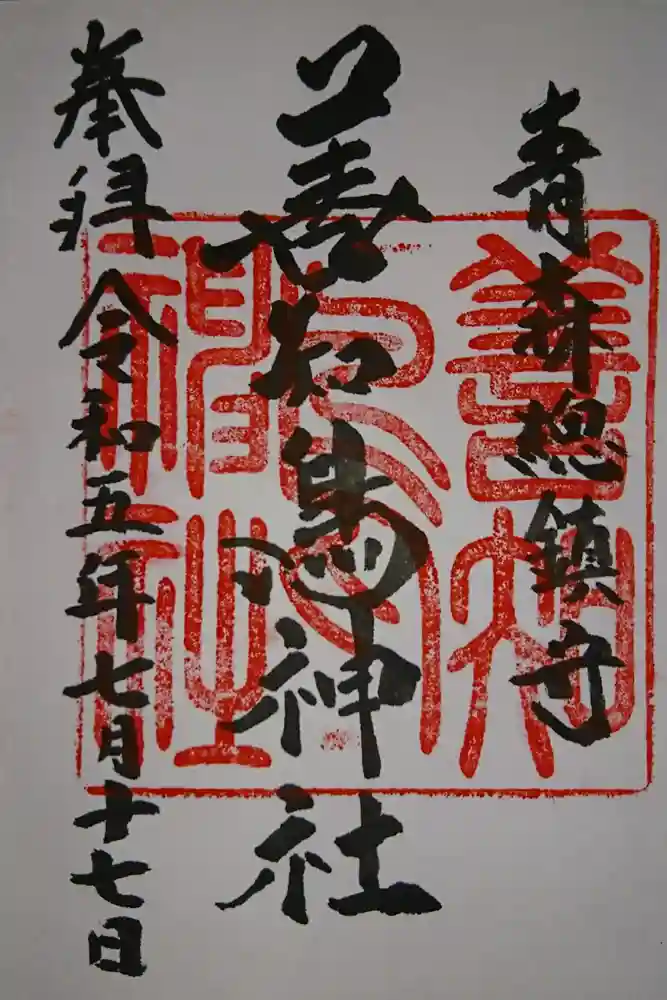 青森総鎮守
善知鳥神社
奉拝 令和五年七月十七日
善知鳥神社